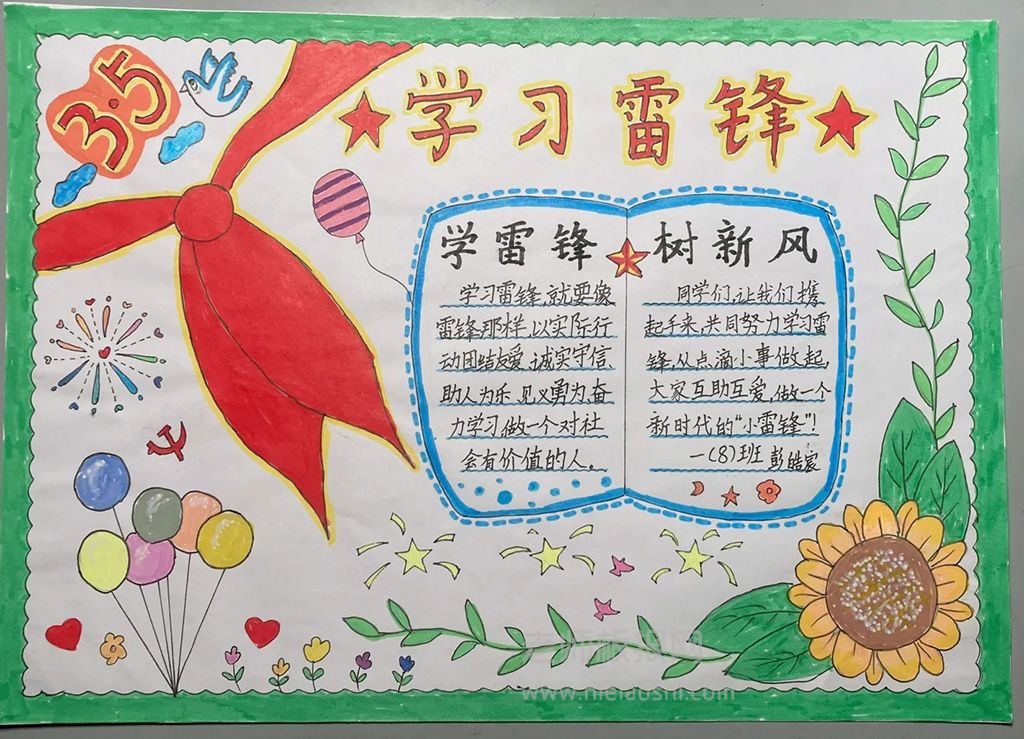 3.5
学习雷锋
学雷锋
学习雷锋,就要像
雷锋那样,以实际行
动团结友爱、诚实守信、
助人为乐、见义勇为、奋
力学习,做一个对社
会有价值的人。
树新风
同学们,让我们携
起手来,共同努力学习雷
锋,从点滴小事做起,
大家互助互爱,做一个
新时代的“小雷锋”!
一(8)班 彭皓宸